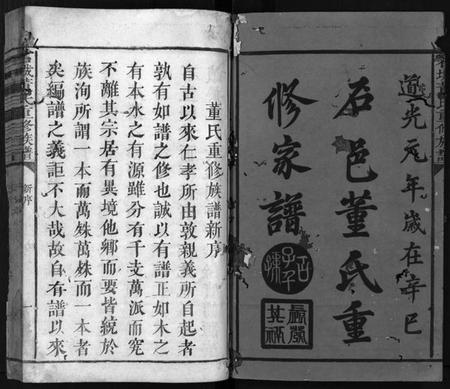 道光元年歲在辛巳
石邑董氏重
修家譜
董氏重修族譜新序
自古以來仁孝所由敦親義所自起者
孰有如譜之修也誠以有譜正如木之
有本水之有源雖分有千支萬派而究
不離其宗居有異境他鄉而要皆統於
族洵所謂一本而萬殊萬殊而一本者
矣編譜之義詎不大哉故自有譜以來
董氏重修族譜
新序
一